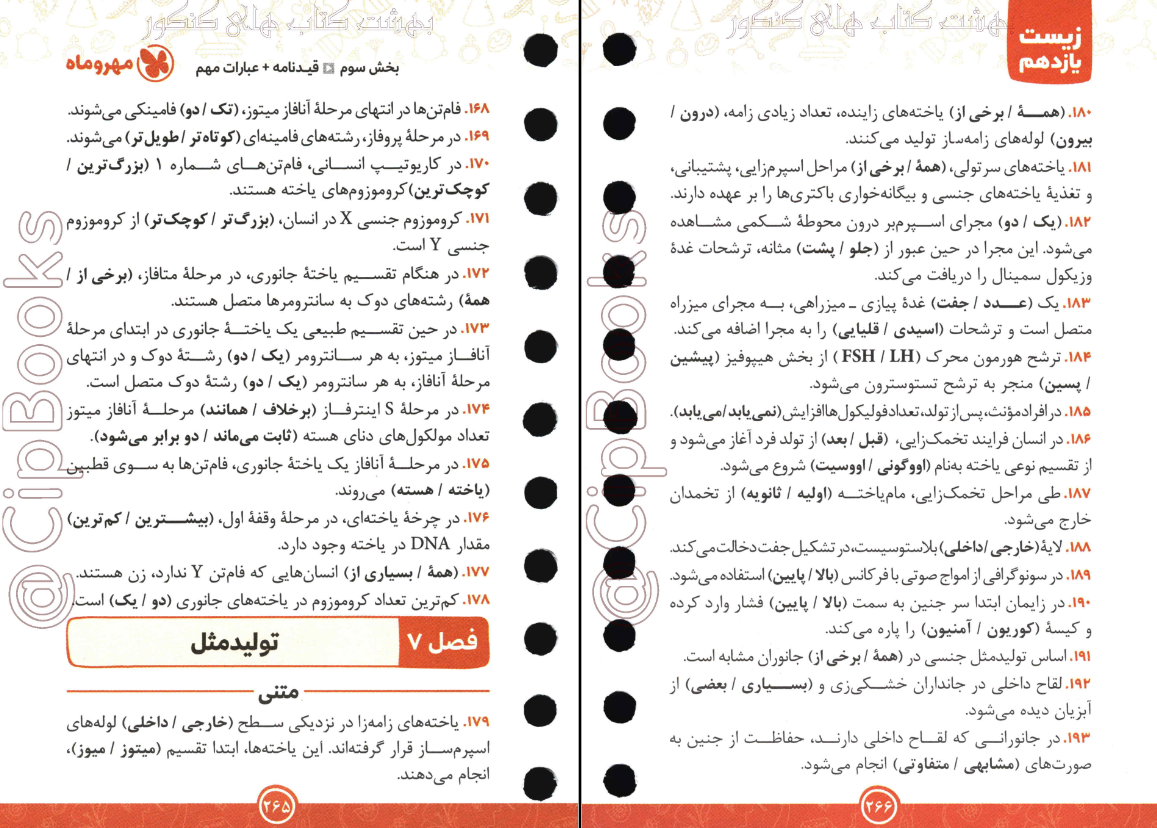 بهشت کتاب های کنکور
بخش سوم
قیدنامه + عبارات مهم
مهروماه
۱۶۸. فام‌تن‌ها در انتهای مرحلهٔ آنافاز میتوز، (تک / دو) فامینکی می‌شوند.
۱۶۹. در مرحلهٔ پروفاز، رشته‌های فامینه‌ای (کوتاه‌تر / طویل‌تر) می‌شوند.
۱۷۰. در کاریوتیپ انسانی، فام‌تن‌های شماره ۱ (بزرگ‌ترین /
کوچک‌ترین) کروموزوم‌های یاخته هستند.
۱۷۱. کروموزوم جنسی X در انسان، (بزرگ‌تر / کوچک‌تر) از کروموزوم
جنسی Y است.
۱۷۲. در هنگام تقسیم یاختهٔ جانوری، در مرحلهٔ متافاز، (برخی از /
همهٔ) رشته‌های دوک به سانترومرها متصل هستند.
۱۷۳. در حین تقسیم طبیعی یک یاختهٔ جانوری در ابتدای مرحلهٔ
آنافاز میتوز، به هر سانترومر (یک / دو) رشتهٔ دوک و در انتهای
مرحلهٔ آنافاز، به هر سانترومر (یک / دو) رشتهٔ دوک متصل است.
۱۷۴. در مرحلهٔ S اینترفاز (برخلاف / همانند) مرحلهٔ آنافاز میتوز
تعداد مولکول‌های دنای هسته (ثابت می‌ماند / دو برابر می‌شود).
۱۷۵. در مرحلهٔ آنافاز یک یاختهٔ جانوری، فام‌تن‌ها به سوی قطبین
(یاخته / هسته) می‌روند.
۱۷۶. در چرخهٔ یاخته‌ای، در مرحلهٔ وقفهٔ اول، (بیشترین / کم‌ترین)
مقدار DNA در یاخته وجود دارد.
۱۷۷. (همهٔ / بسیاری از) انسان‌هایی که فام‌تن Y ندارد، زن هستند.
۱۷۸. کم‌ترین تعداد کروموزوم در یاخته‌های جانوری (دو / یک) است.
فصل ۷
تولیدمثل
متنی
۱۷۹. یاخته‌های زامه‌زا در نزدیکی سطح (خارجی / داخلی) لوله‌های
اسپرم‌ساز قرار گرفته‌اند. این یاخته‌ها، ابتدا تقسیم (میتوز / میوز)،
انجام می‌دهند.
۲۶۵
@CipBooks
بهشت کتاب های کنکور
زیست
یازدهم
۱۸۰. (همهٔ / برخی از) یاخته‌های زاینده، تعداد زیادی زامه، (درون /
بیرون) لوله‌های زامه‌ساز تولید می‌کنند.
۱۸۱. یاخته‌های سرتولی، (همهٔ / برخی از) مراحل اسپرم‌زایی، پشتیبانی،
و تغذیهٔ یاخته‌های جنسی و بیگانه‌خواری باکتری‌ها را بر عهده دارند.
۱۸۲. (یک / دو) مجرای اسپرم‌بر درون محوطهٔ شکمی مشاهده
می‌شود. این مجرا در حین عبور از (جلو / پشت) مثانه، ترشحات غدهٔ
وزیکول سمینال را دریافت می‌کند.
۱۸۳. یک (عدد / جفت) غدهٔ پیازی ـ میزراهی، به مجرای میزراه
متصل است و ترشحات (اسیدی / قلیایی) را به مجرا اضافه می‌کند.
۱۸۴. ترشح هورمون محرک (FSH / LH) از بخش هیپوفیز (پیشین
/ پسین) منجر به ترشح تستوسترون می‌شود.
۱۸۵. در افراد مؤنث، پس از تولد، تعداد فولیکول‌ها افزایش (نمی‌یابد/می‌یابد).
۱۸۶. در انسان فرایند تخمک‌زایی، (قبل / بعد) از تولد فرد آغاز می‌شود و
از تقسیم نوعی یاخته به‌نام (اووگونی / اووسیت) شروع می‌شود.
۱۸۷. طی مراحل تخمک‌زایی، مام‌یاخته (اولیه / ثانویه) از تخمدان
خارج می‌شود.
۱۸۸. لایهٔ (خارجی/داخلی) بلاستوسیست، در تشکیل جفت دخالت می‌کند.
۱۸۹. در سونوگرافی از امواج صوتی با فرکانس (بالا / پایین) استفاده می‌شود.
۱۹۰. در زایمان ابتدا سر جنین به سمت (بالا / پایین) فشار وارد کرده
و کیسهٔ (کوریون / آمنیون) را پاره می‌کند.
۱۹۱. اساس تولیدمثل جنسی در (همهٔ / برخی از) جانوران مشابه است.
۱۹۲. لقاح داخلی در جانداران خشکی‌زی و (بسیاری / بعضی) از
آبزیان دیده می‌شود.
۱۹۳. در جانورانی که لقاح داخلی دارند، حفاظت از جنین به
صورت‌های (مشابهی / متفاوتی) انجام می‌شود.
۲۶۶
@CipBooks